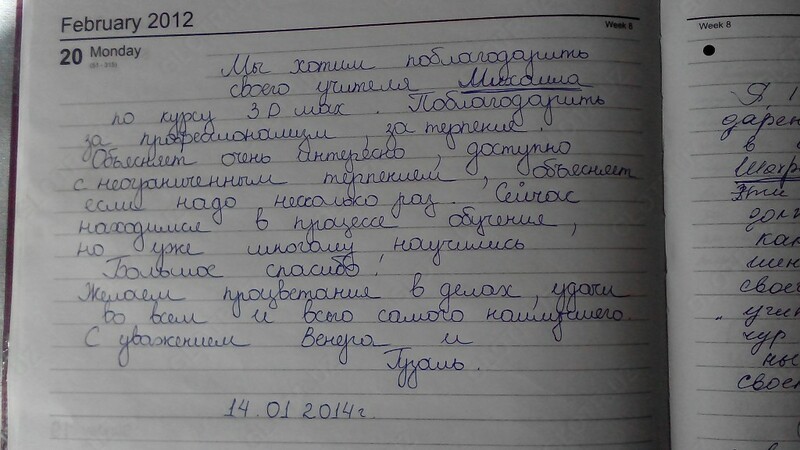 February 2012
Week 8
20 Monday
Мы хотим поблагодарить
своего учителя Михаила
по курсу 3D мах. Поблагодарить
за профессионализм, за терпение.
Объясняет очень интересно, доступно
с неограниченным терпением, объясняет
если надо несколько раз. Сейчас
находимся в процессе обучения,
но уже многому научились
Большое спасибо!
Желаем процветания в делах, удачи
во всем и всего самого наилучшего.
С уважением Венера и
Гузаль.
14.01 2014г.
Week 8
Я
дарен
в
Эти
долг
как
мен
своег
учит
чур
ны
своег